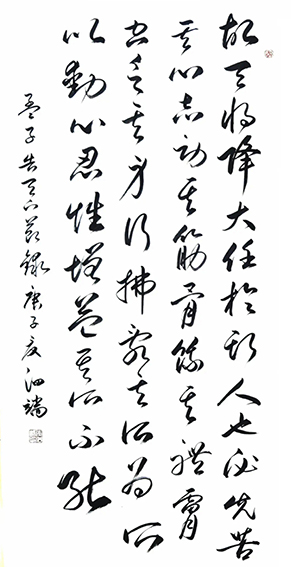 故天将降大任於斯人也必先苦
其心志劳其筋骨餓其體膚
空乏其身行拂亂其所為所
以動心忍性增益其所不能
孟子告子下節錄庚子夏